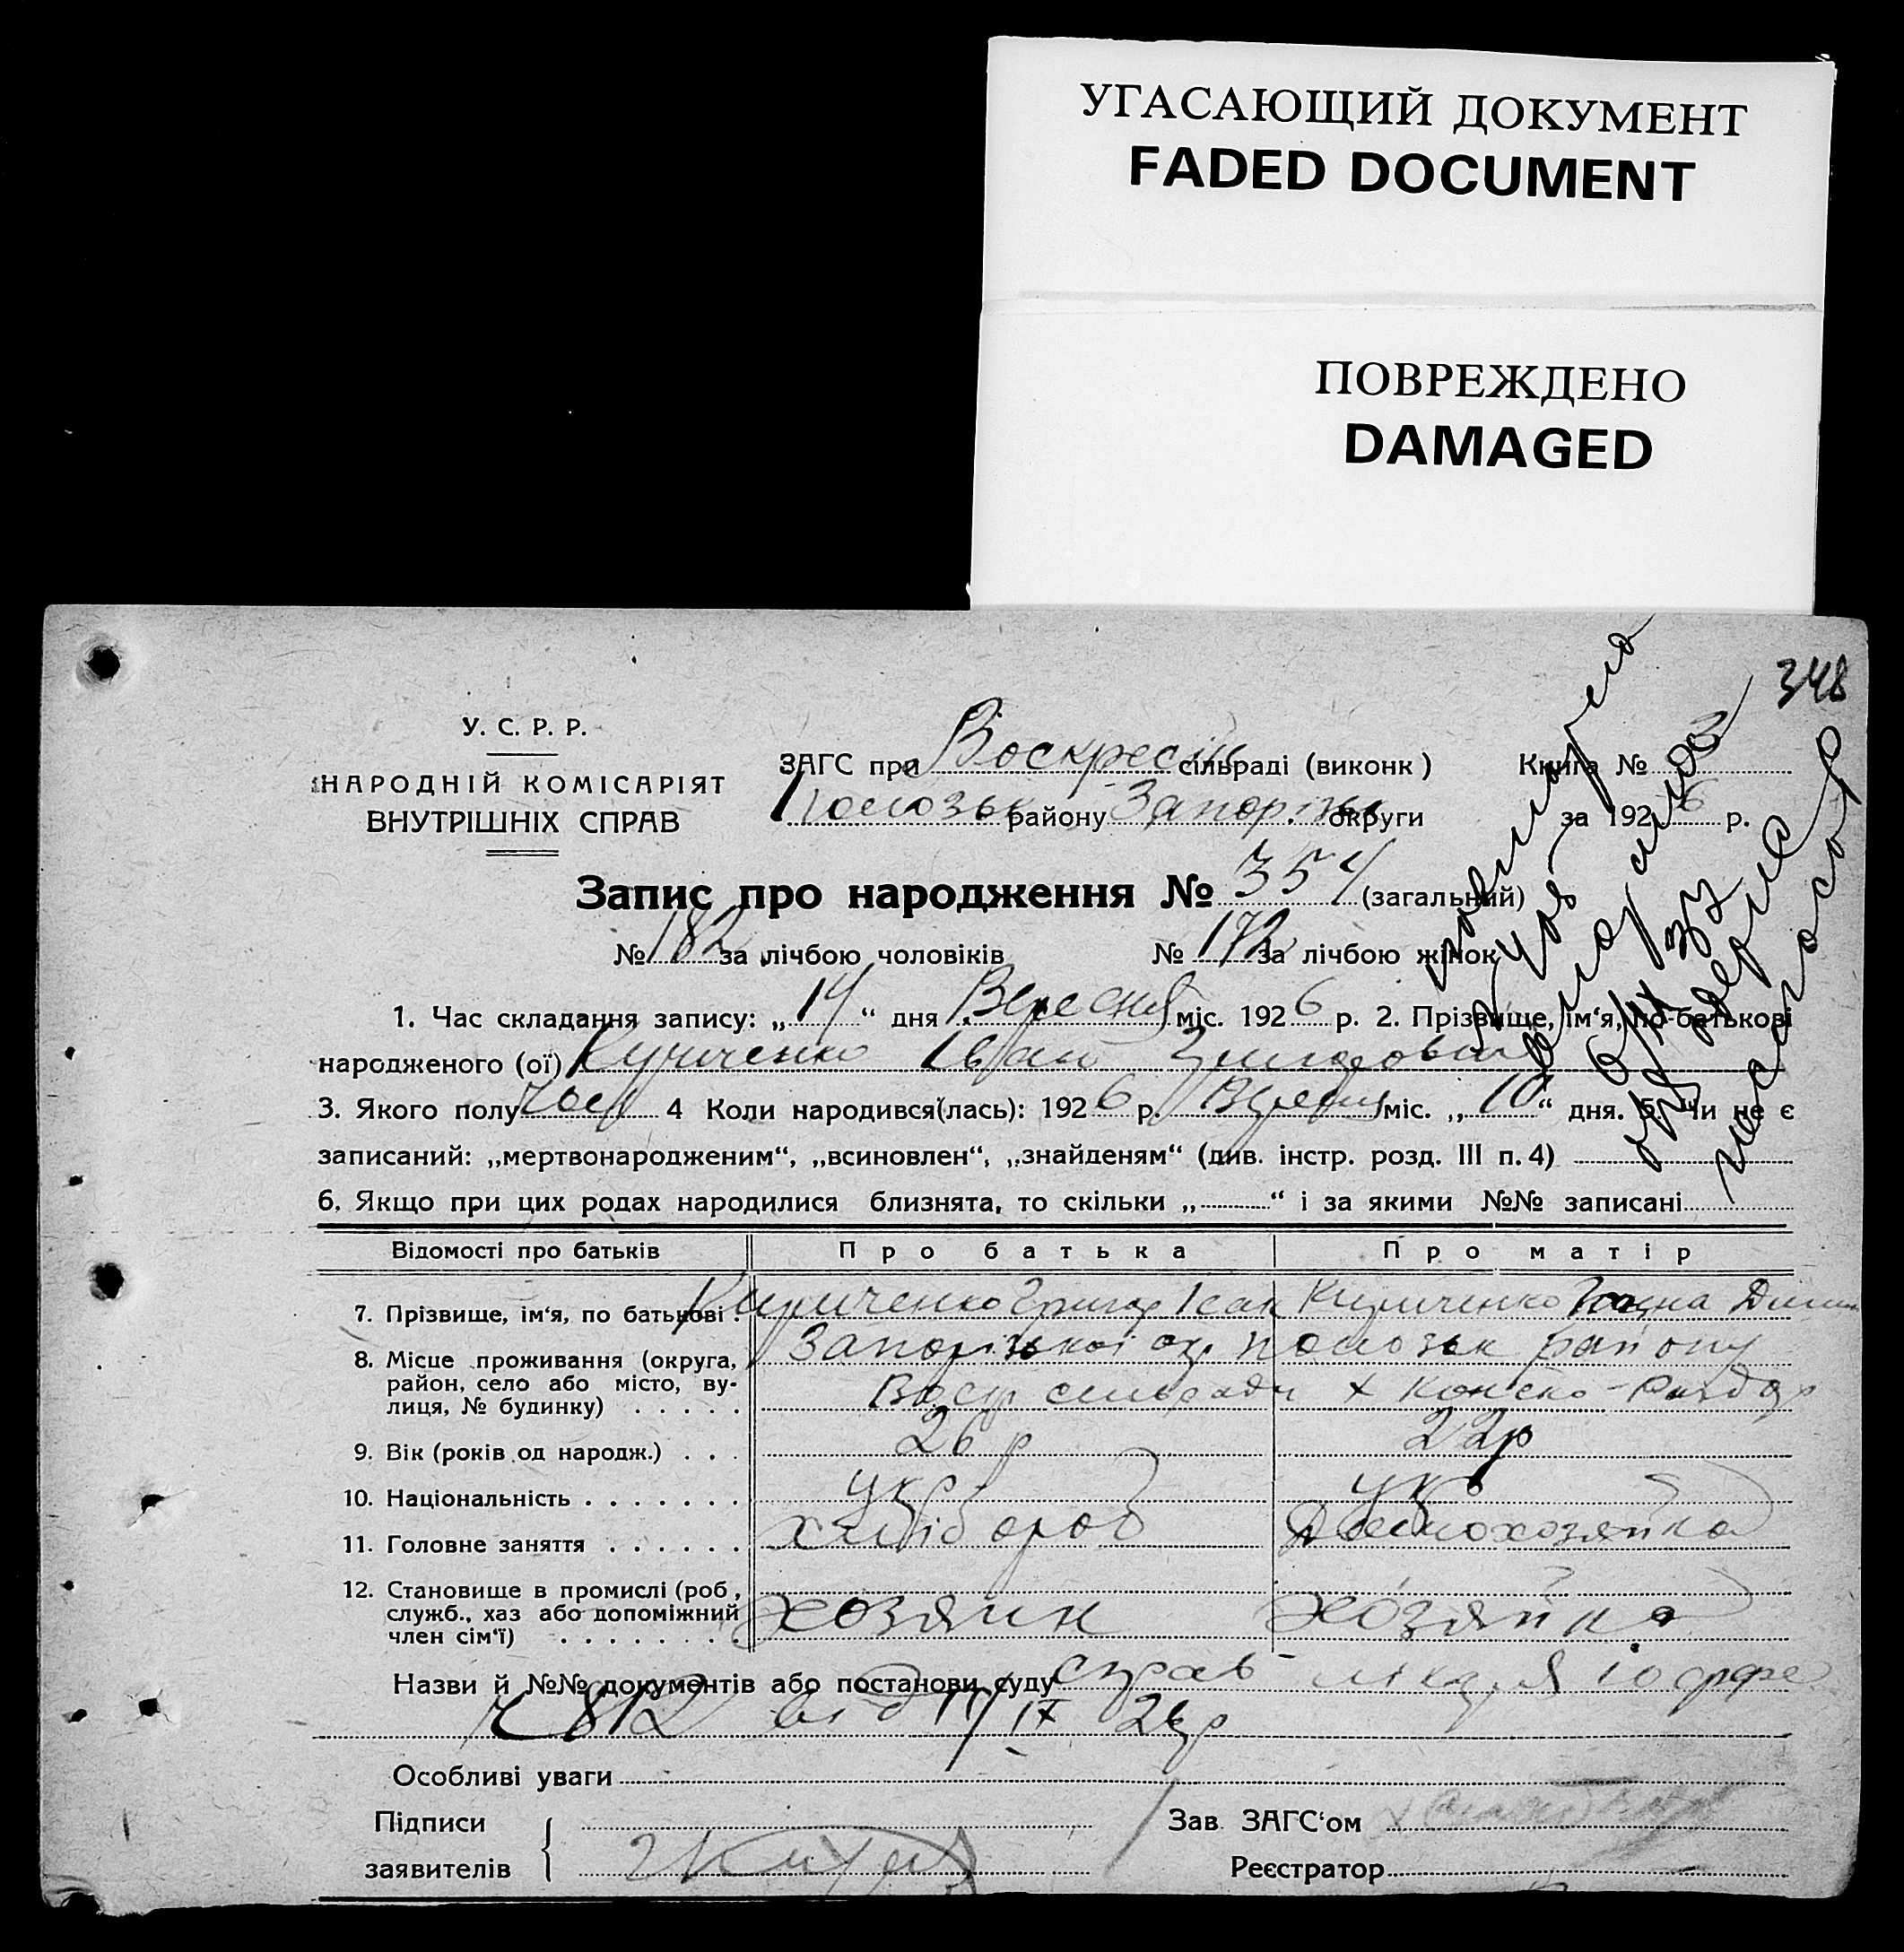 УГАСАЮЩИЙ ДОКУМЕНТ
FADED DOCUMENT
ПОВРЕЖДЕНО
DAMAGED
348
У. С. Р. Р.
НАРОДНІЙ КОМІСАРІЯТ
ВНУТРІШНІХ СПРАВ
ЗАГС при Воскресінс сільраді (виконк) Книга № 3
району Запоріжс округи за 1926 р.
Запис про народження № 354 (загальний)
№ 182 за лічбою чоловіків № 172 за лічбою жінок
1. Час складання запису: „14“ дня Вересня міс. 1926 р. 2. Прізвище, ім‘я, по-батькові
народженого (ої) Кириченко Іван
3. Якого полу чол 4 Коли народився(лась): 1926 р. Вересня міс. „10“ дня. 5. Чи не є
записаний: „мертвонародженим“, „всиновлен“, „знайденям“ (див. інстр. розд. III п. 4)
6. Якщо при цих родах народилися близнята, то скільки „ “ і за якими №№ записані
Відомості про батьків Про батька Про матір
7. Прізвище, ім‘я, по батькові Кириченко Григор Ісак Кириченко
8. Місце проживання (округа, Запорізької окр Полозьк району
район, село або місто, ву- Воскр сільради х Конско-Раздор
лиця, № будинку)
9. Вік (років од народж.) 26 р 22р
10. Національність укр укр
11. Головне заняття хлібороб Домохозяйка
12. Становище в промислі (роб,
служб., хаз або допоміжний хозяин хозяйка
член сім‘ї)
Назви й №№ документів або постанови суду справ лікаря
812 від IX 26р
Особливі уваги
Підписи Зав ЗАГС‘ом
заявителів Реєстратор